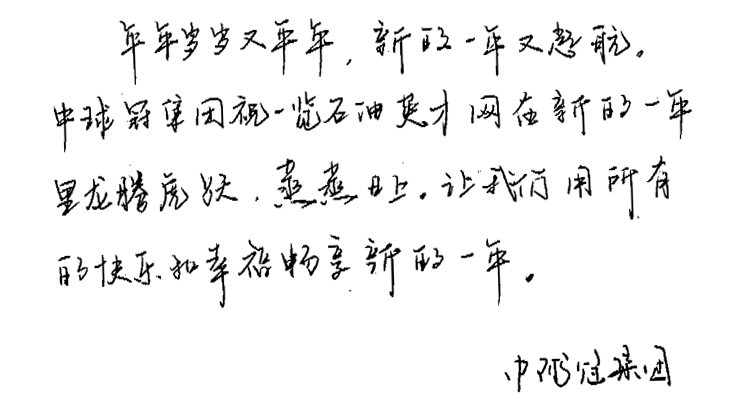 年年岁岁又年年,新的一年又起航。
中球冠集团祝一览石油英才网在新的一年
里龙腾虎跃,蒸蒸日上。让我们用所有
的快乐和幸福畅享新的一年。
中球冠集团